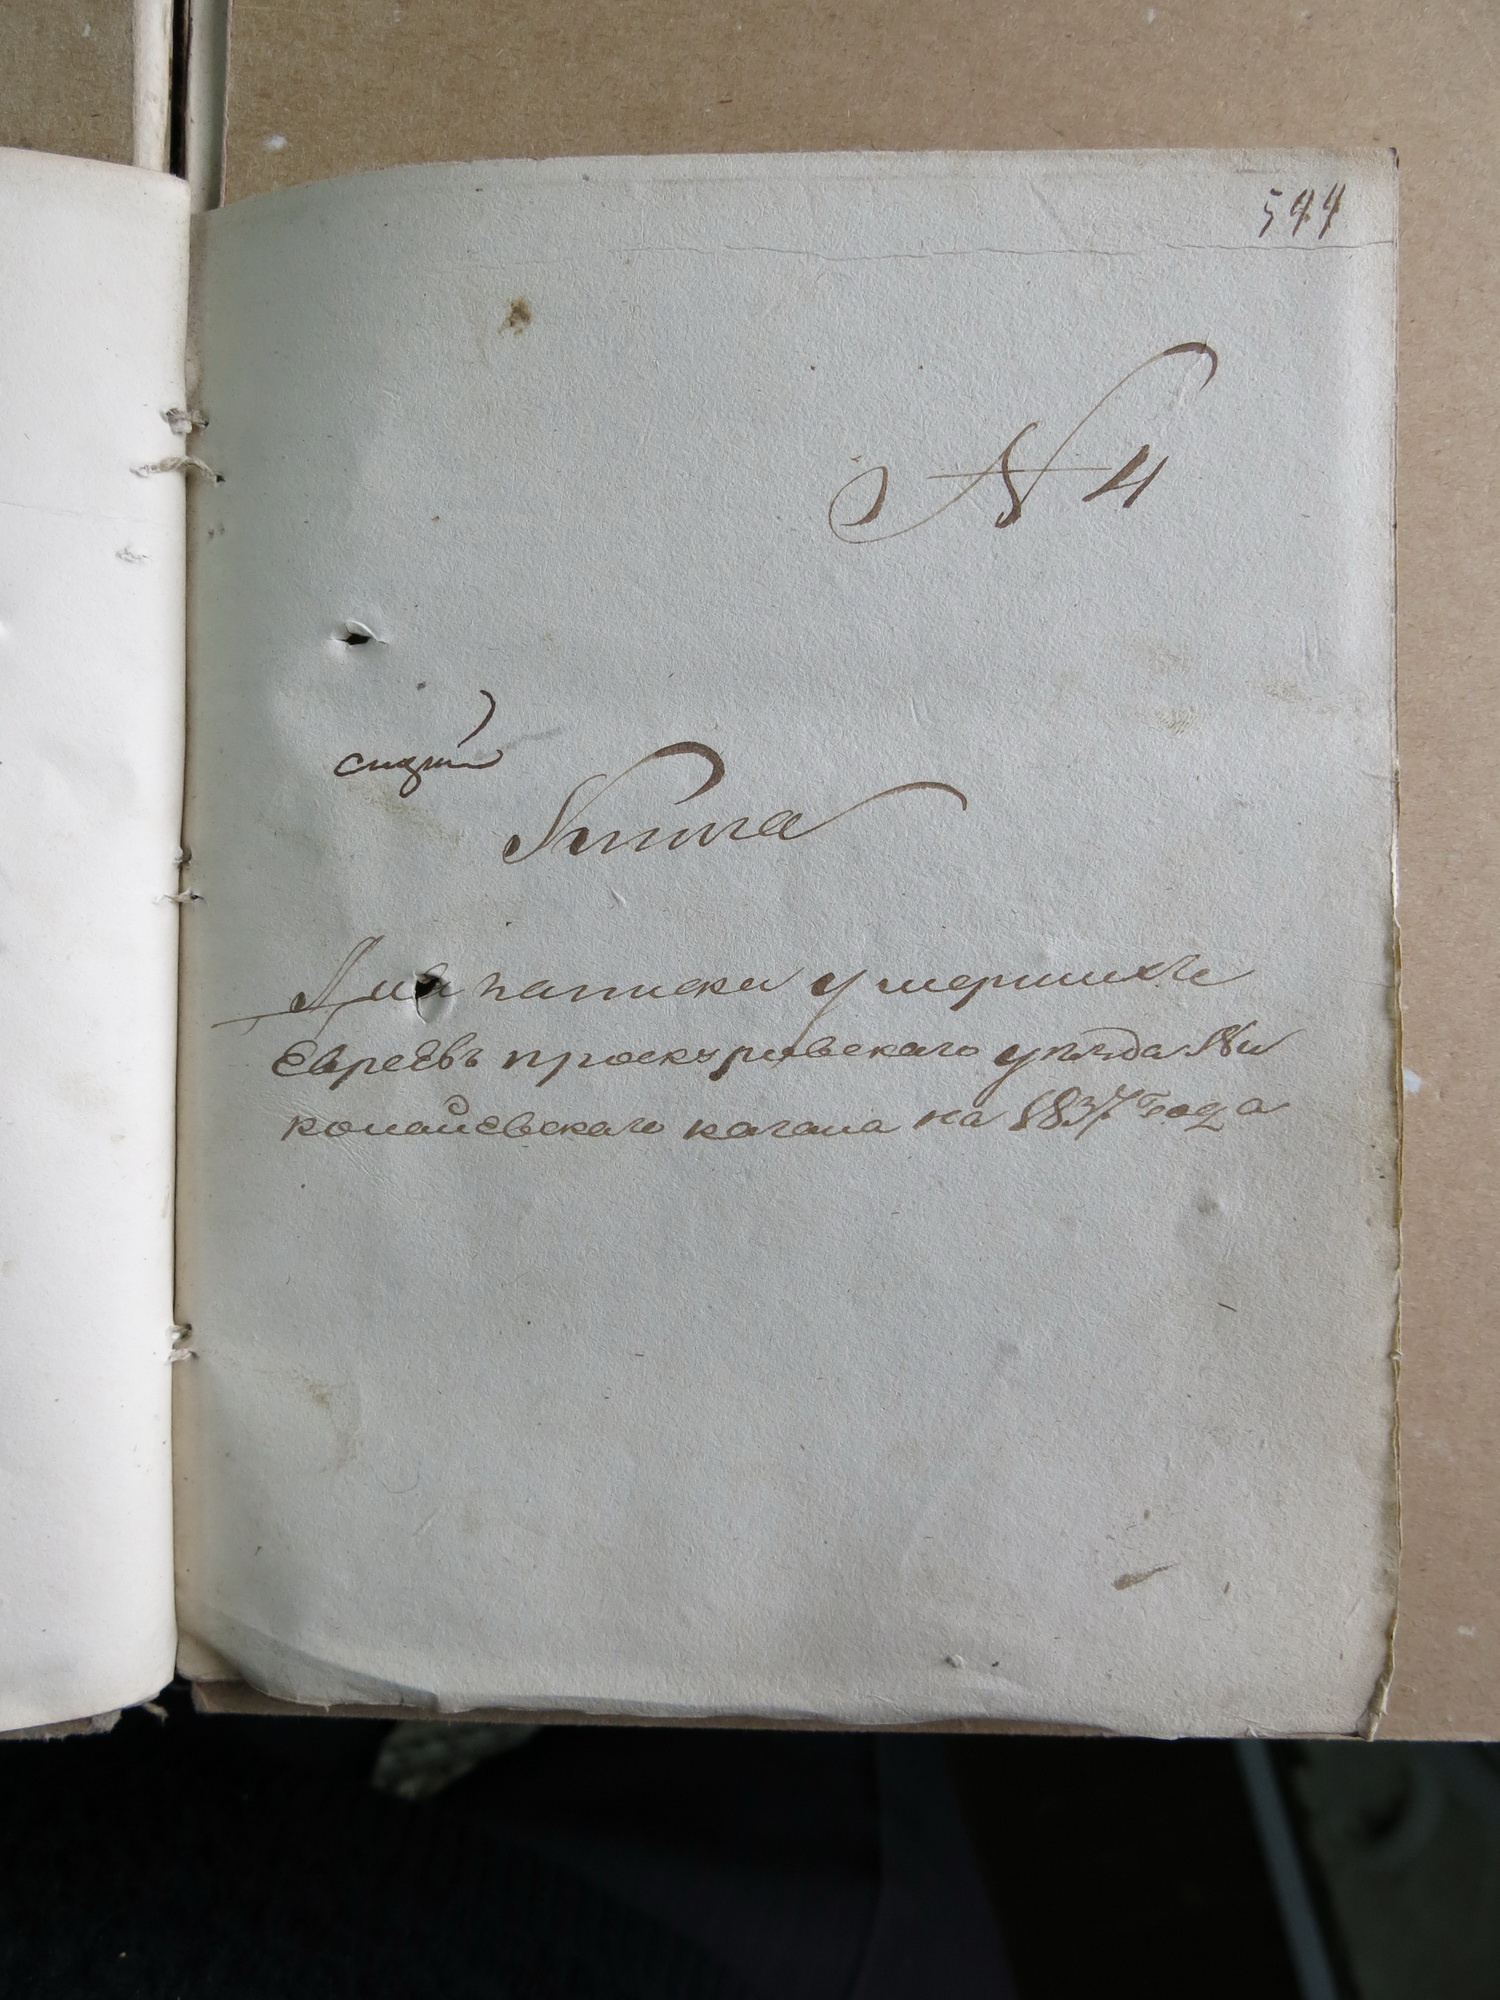 544
N 4
Книга
Для записки умершихъ
Евреевъ проскуровскаго уѣзда Ни
колаевскаго кагала на 1837 года